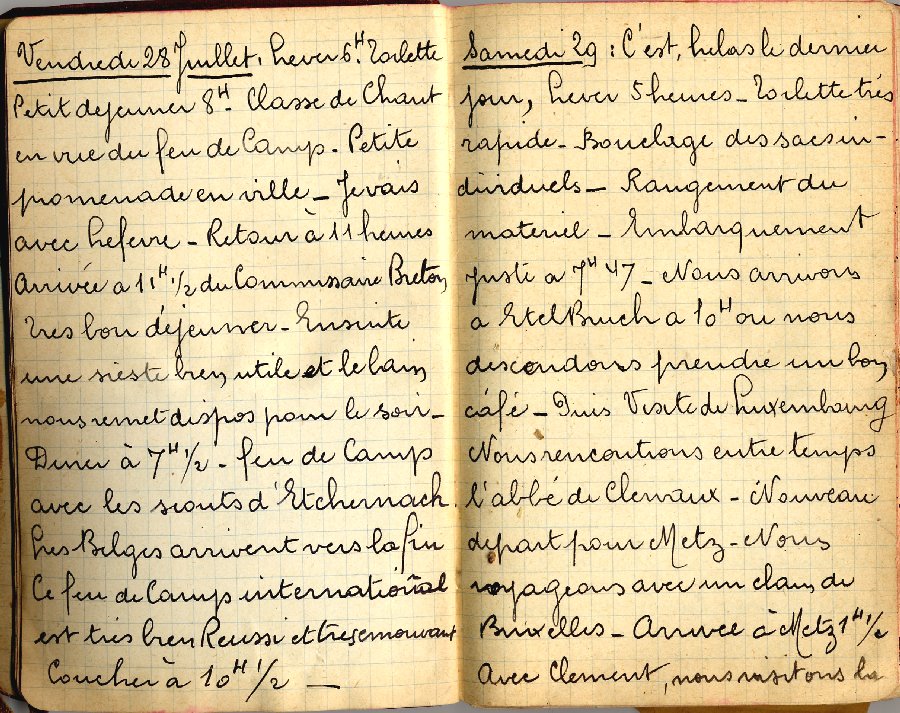 Vendredi 28 Juillet. Lever 6H. Toilette
Petit dejeuner 8H. Classe de Chant
en vue du feu de Camp - Petite
promenade en ville - Je vais
avec Lefevre - Retour à 11 heures
Arrivée a 11H 1/2 du Commissaire Breton,
Très bon déjeuner - Ensuite
une sieste bien utile et le bain,
nous remet dispos pour le soir -
Diner à 7H 1/2 - feu de Camp
avec les scouts d'Etchernach.
Les Belges arrivent vers la fin
Ce feu de Camp international
est très bien Reussi et tres emouvant
Coucher à 10H 1/2 -
Samedi 29 : C'est, helas le dernier
jour, Lever 5 heures - Toilette très
rapide - Bouclage des sacs in-
dividuels - Rangement du
materiel - Embarquement
juste a 7H 47 - Nous arrivons
a Etel Bruch a 10H ou nous
descendons prendre un bon,
café - Puis Visite de Luxembourg
Nous rencontrons entre temps
l'abbé de Clervaux - Nouveau
depart pour Metz - Nous
voyageons avec un clan, de
Bruxelles - Arrivée à Metz 1H 1/2
Avec Clement, nous visitons la